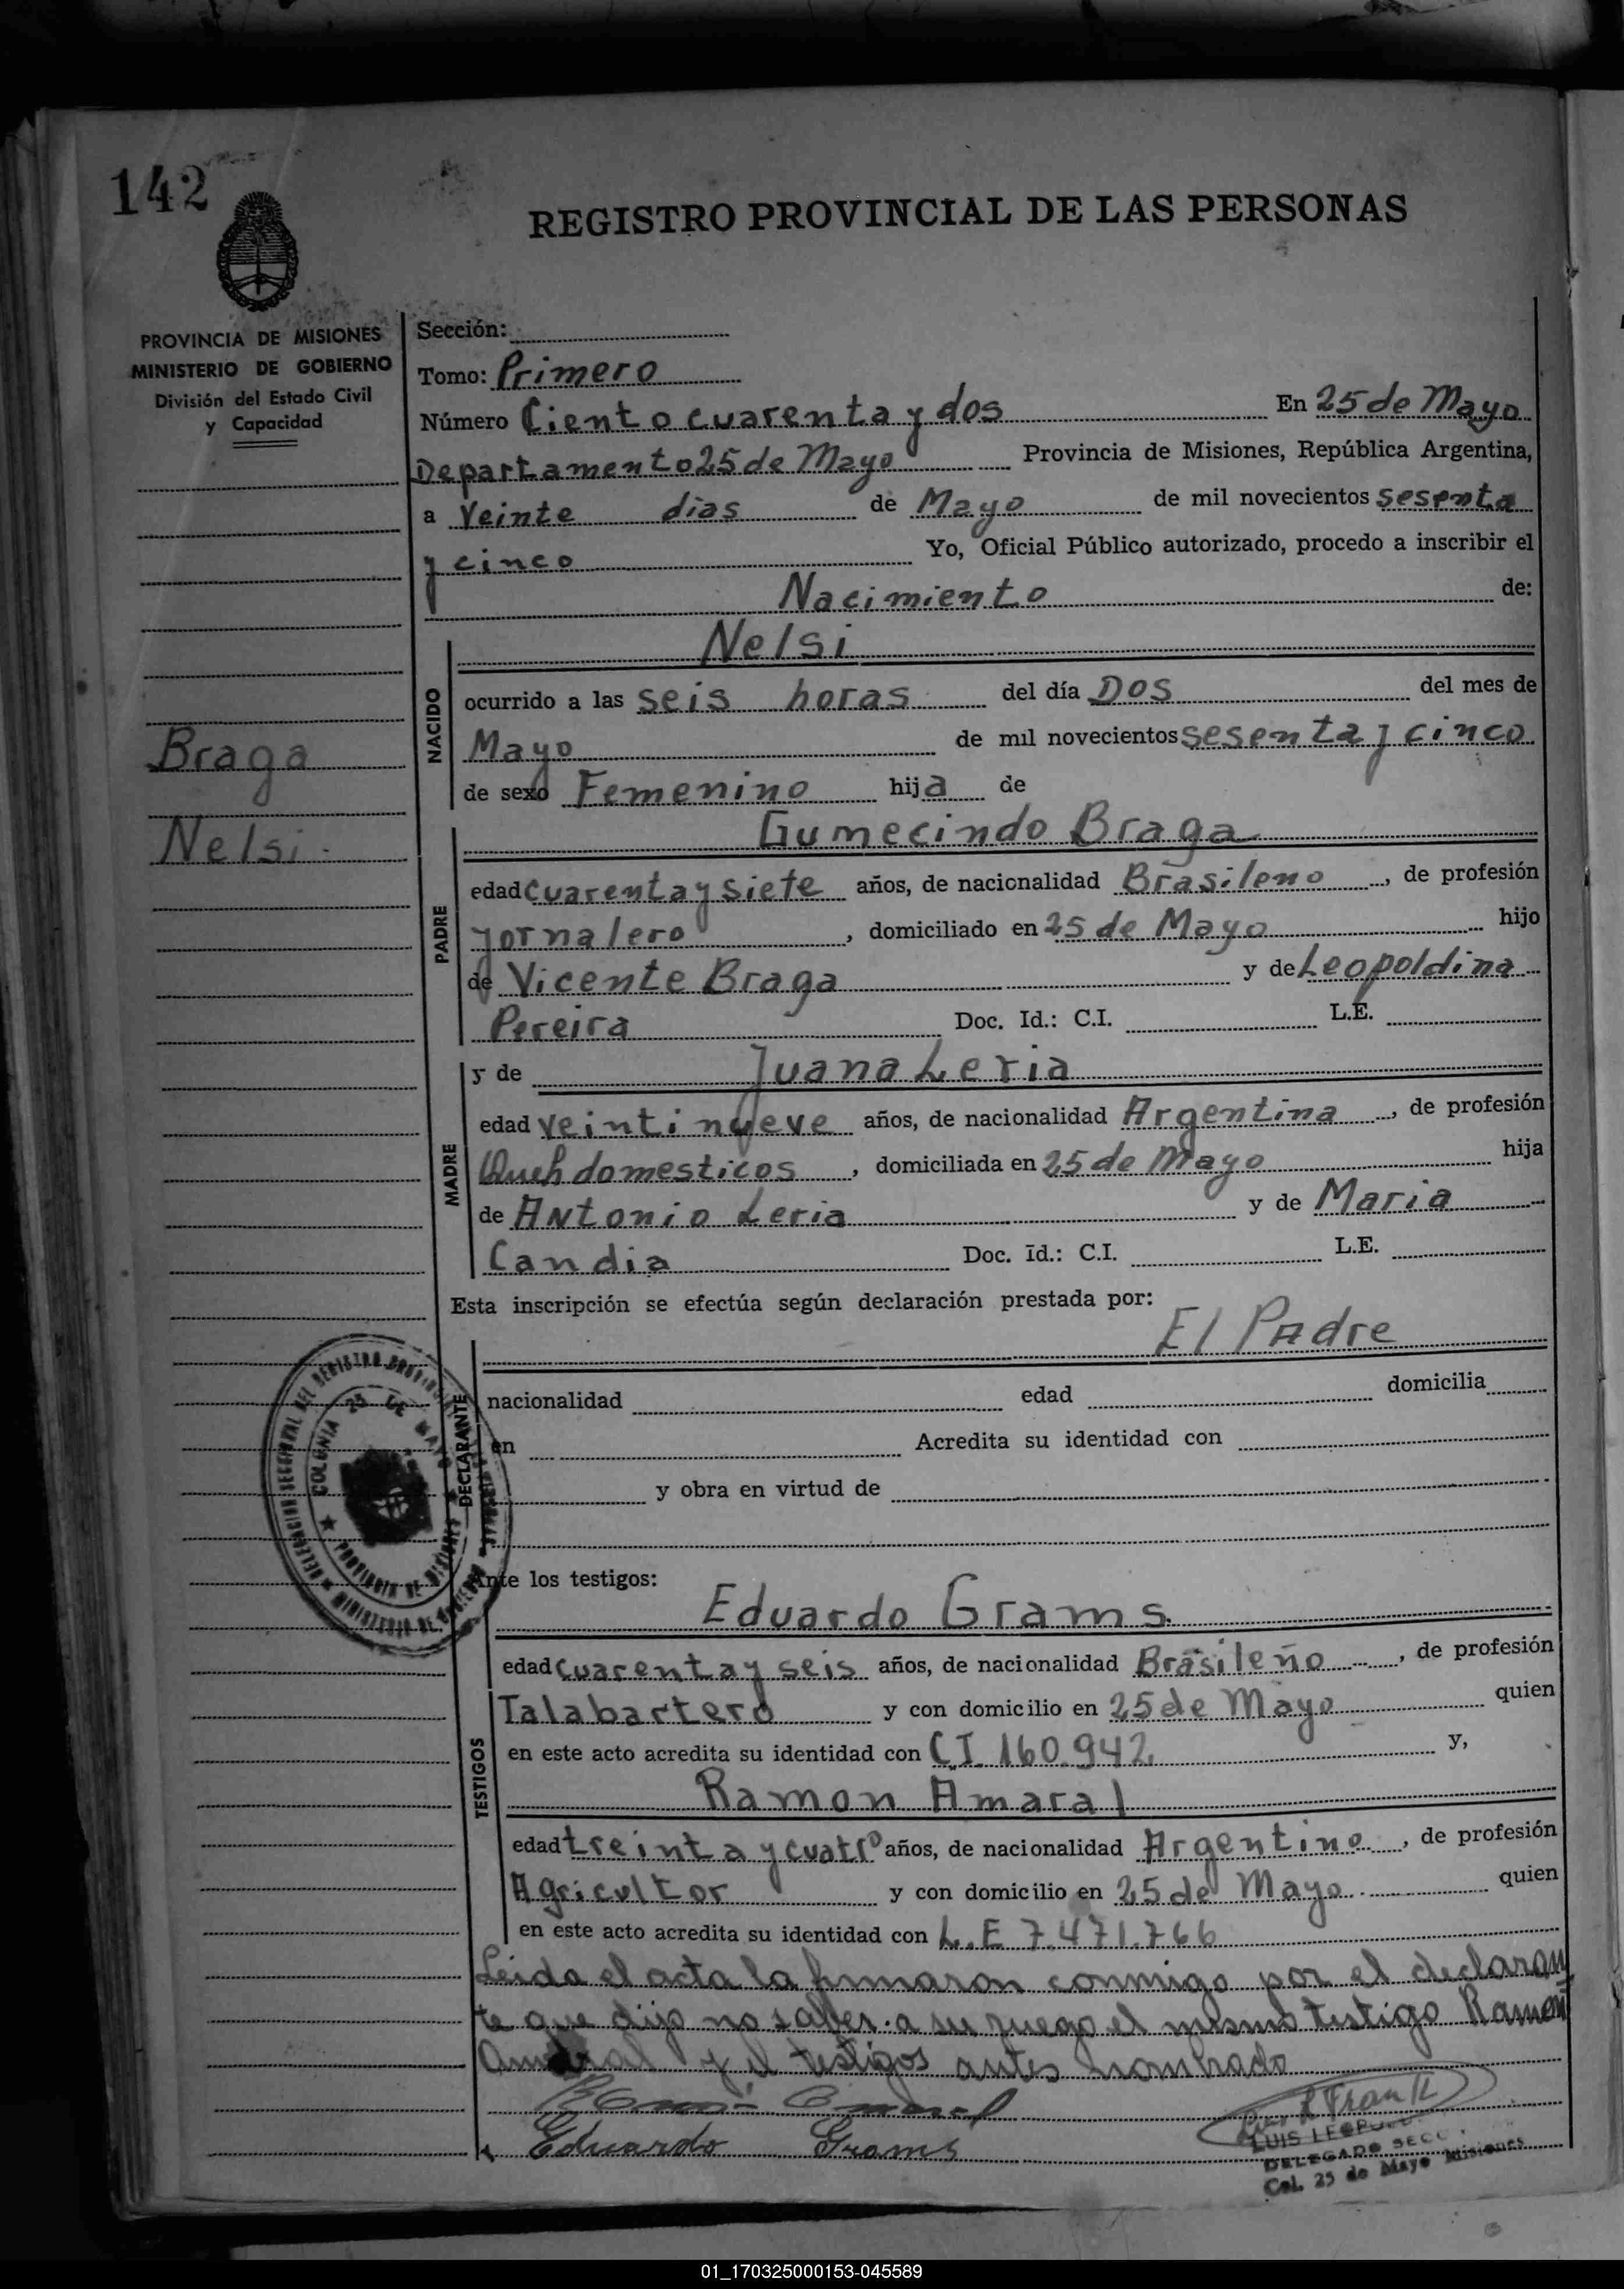 142
REGISTRO PROVINCIAL DE LAS PERSONAS
PROVINCIA DE MISIONES
MINISTERIO DE GOBIERNO
División del Estado Civil
y Capacidad
Braga
Nelsi.
Sección:
Tomo: Primero
Número Ciento cuarenta y dos En 25 de Mayo
Departamento 25 de Mayo Provincia de Misiones, República Argentina,
a Veinte dias de Mayo de mil novecientos sesenta
y cinco Yo, Oficial Público autorizado, procedo a inscribir el
Nacimiento de:
Nelsi
NACIDO
ocurrido a las seis horas del día Dos del mes de
Mayo de mil novecientos sesenta y cinco
de sexo Femenino hija de
Gumecindo Braga
PADRE
edad cuarenta y siete años, de nacionalidad Brasileno, de profesión
jornalero, domiciliado en 25 de Mayo hijo
de Vicente Braga y de Leopoldina
Pereira Doc. Id.: C.I. L.E.
y de Juana Leria
MADRE
edad veinti nueve años, de nacionalidad Argentina, de profesión
Queh domesticos, domiciliada en 25 de Mayo hija
de Antonio Leria y de Maria
Candia Doc. Id.: C.I. L.E.
Esta inscripción se efectúa según declaración prestada por:
El Padre
DECLARANTE
nacionalidad edad domicilia
en Acredita su identidad con
y obra en virtud de
COLONIA 25 DE MAYO
PROVINCIA DE MISIONES
Ante los testigos:
Eduardo Grams
TESTIGOS
edad cuarenta y seis años, de nacionalidad Brasileño, de profesión
Talabartero y con domicilio en 25 de Mayo quien
en este acto acredita su identidad con C.I. 160.942 y,
Ramon Amaral
edad treinta y cuatro años, de nacionalidad Argentino, de profesión
Agricultor y con domicilio en 25 de Mayo quien
en este acto acredita su identidad con L.E 7.471.766
Leida el acta la firmaron conmigo por el declaran
te que dijo no saber a su ruego el mismo testigo Ramon
Amaral y el testigos antes nombrado
Ramon Amaral
Eduardo Grams
LUIS LEOPOLDO
DELEGADO SECC.
Col. 25 de Mayo Misiones
01_170325000153-045589